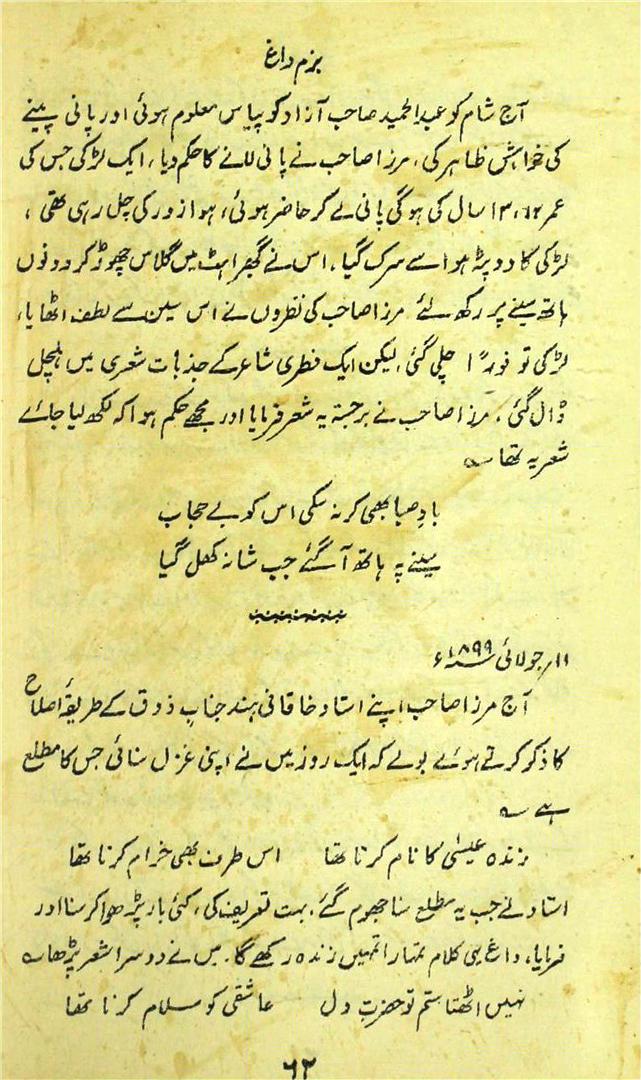 بزم داغ
آج شام کو عبدالحمید صاحب آزاد کو پیاس معلوم ہوئی اور پانی پینے
کی خواہش ظاہر کی، مرزا صاحب نے پانی لانے کا حکم دیا، ایک لڑکی جس کی
عمر ۱۳،۱۲ سال کی ہوگی پانی لے کر حاضر ہوئی، ہوا زور کی چل رہی تھی،
لڑکی کا دوپٹہ ہوا سے سرک گیا، اس نے گھبراہٹ میں گلاس چھوڑ کر دونوں
ہاتھ سینے پر رکھ لئے مرزا صاحب کی نظروں نے اس سین سے لطف اٹھایا،
لڑکی تو فوراً چلی گئی، لیکن ایک فطری شاعر کے جذبات شعری میں ہلچل
ڈال گئی، مرزا صاحب نے برجستہ یہ شعر فرمایا اور مجھے حکم ہوا کہ لکھ لیا جائے
شعر یہ تھا ؎
بادِ صبا بھی کر نہ سکی اس کو بے حجاب
سینے پہ ہاتھ آ گئے جب شانہ کھل گیا
۱۱/جولائی ۱۸۹۹ء
آج مرزا صاحب اپنے استاد خاقانی ہند جناب ذوق کے طریقۂ اصلاح
کا ذکر کرتے ہوئے بولے کہ ایک روز میں نے اپنی غزل سنائی جس کا مطلع
ہے ؎
زندہ عیسٰی کا نام کرنا تھا اس طرف بھی خرام کرنا تھا
استاد نے جب یہ مطلع سنا جھوم گئے، بہت تعریف کی، کئی بار پڑھوا کر سنا اور
فرمایا، داغ یہی کلام تمہارا تمہیں زندہ رکھے گا۔ میں نے دوسرا شعر پڑھا ؎
نہیں اٹھتا ستم تو حضرتِ دل عاشقی کو سلام کرنا تھا
۶۲